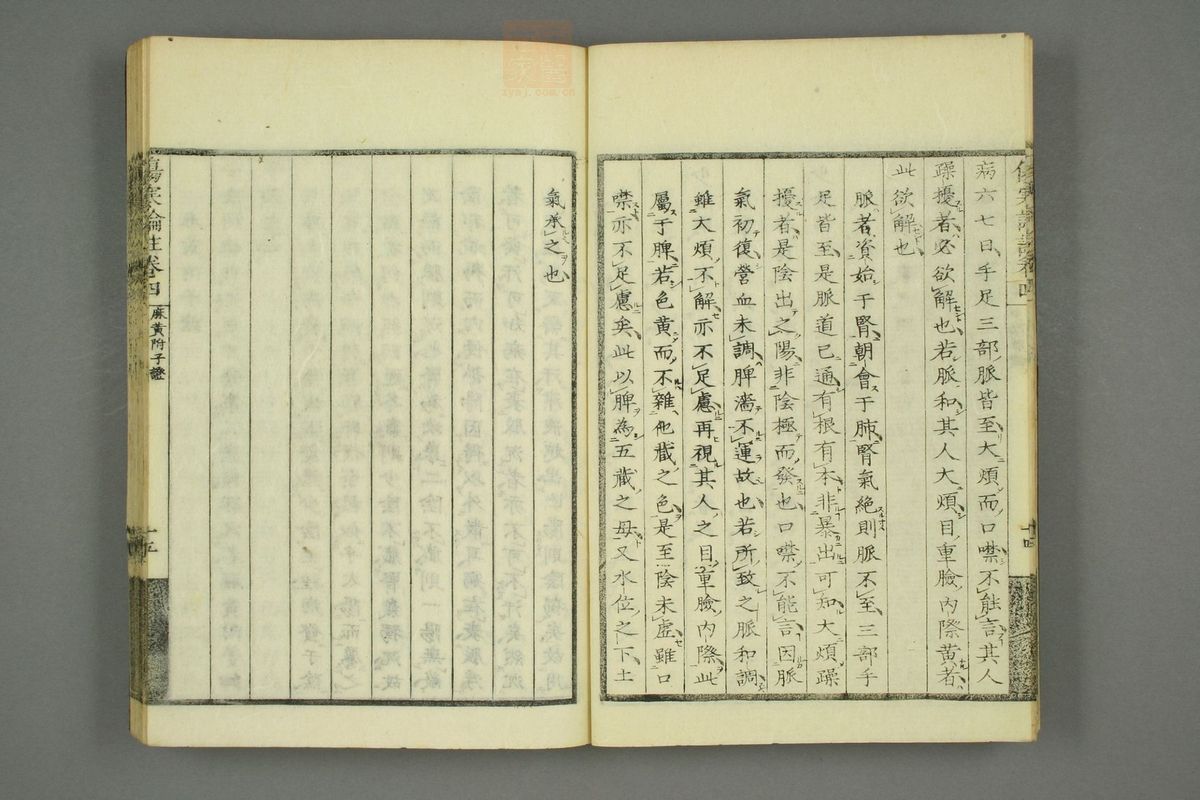 病六七日手足三部脈皆至大煩而口噤不能言其人
躁擾者必欲解也若脈和其人大煩目重臉內際黃者
此欲解也
脈者資始于腎朝會于肺腎氣絕則脈不至三部手
足皆至是脈道已通有根有本非暴出可知大煩躁
擾者是陰出之陽非陰極而發也口噤不能言因脈
氣初復營血未調脾濇不運故也若所致之脈和調
雖大煩不解亦不足慮再視其人之目重臉內際此
屬于脾若色黃而不雜他藏之色是至陰未虛雖口
噤亦不足慮矣此以脾為五藏之母又水位之下土
氣承之也
傷寒論註卷四
麻黃附子證
十五
zysj.com.cn